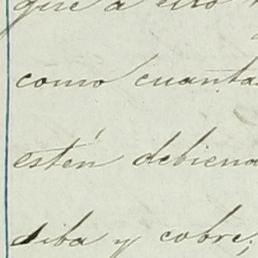 que a ello
como cuanta
estén debiend
siba y cobre;